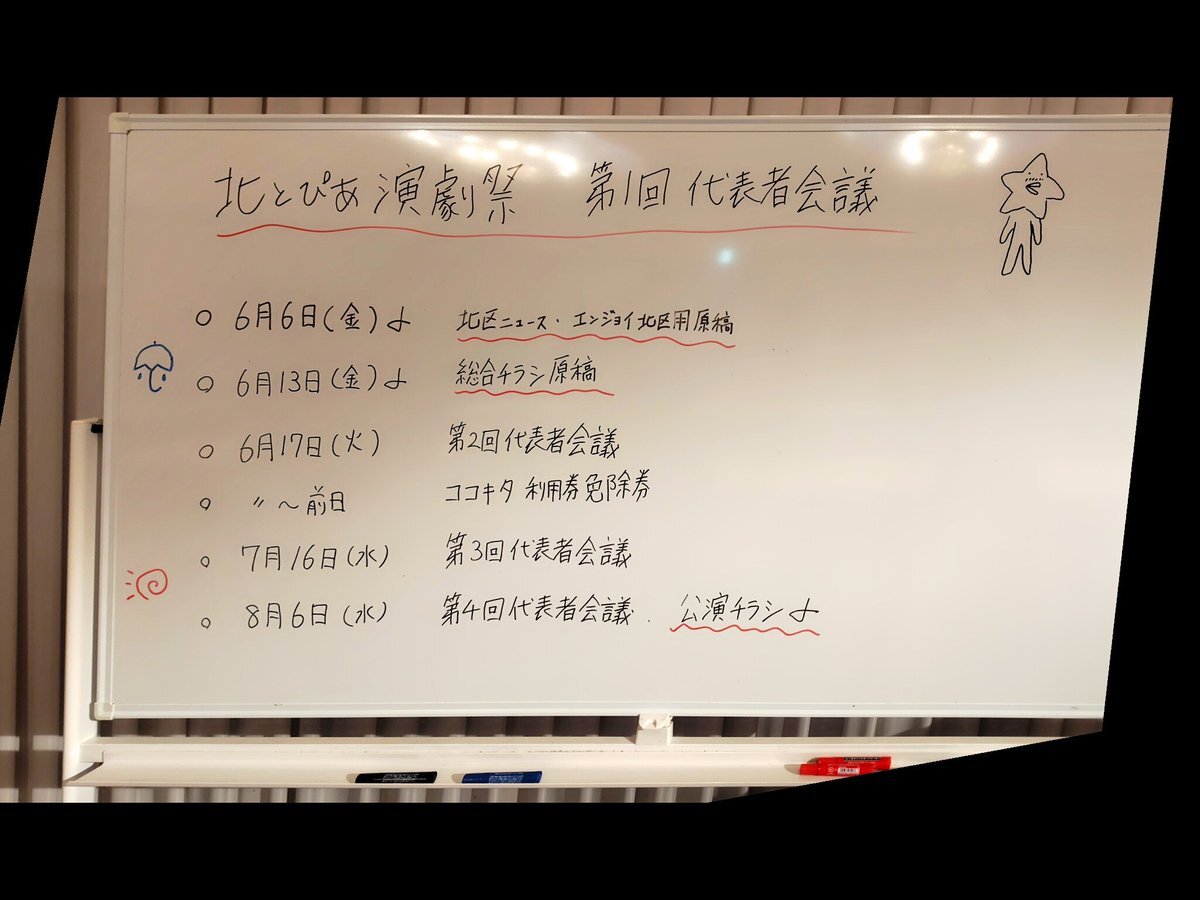 北とぴあ演劇祭 第1回 代表者会議
○ 6月6日(金)〆 北区ニュース・エンジョイ北区用原稿
○ 6月13日(金)〆 総合チラシ原稿
○ 6月17日(火) 第2回代表者会議
○ 〃〜前日 ココキタ 利用券免除券
○ 7月16日(水) 第3回代表者会議
○ 8月6日(水) 第4回代表者会議. 公演チラシ〆